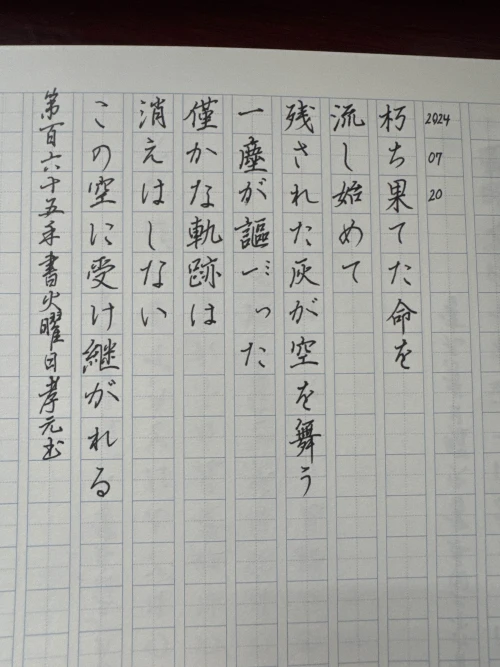 2024 07 20
朽ち果てた命を
流し始めて
残された灰が空を舞う
一塵が謳った
僅かな軌跡は
消えはしない
この空に受け継がれる
第百六十五手書火曜日孝元书